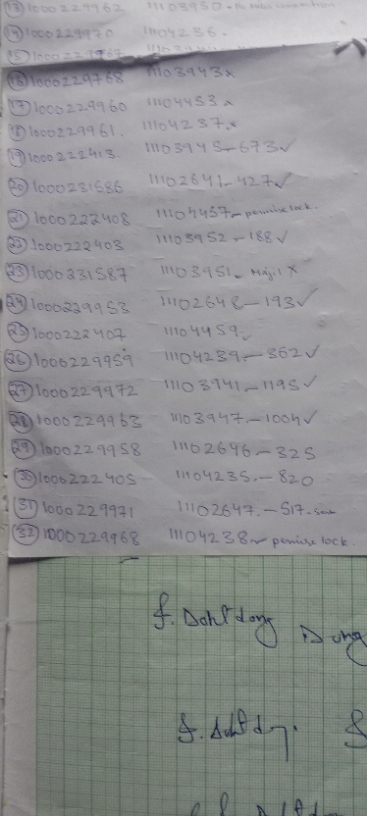 (13) 1000229962 11103950 -
(14) 1000229970 11104236.
(15) 1000229967
(16) 1000229768 11103943 x
(17) 1000229960 11104453 x
(18) 1000229961. 11104237. x
(19) 1000222413. 11103945 - 673 ✓
(20) 1000231586 11102641 - 427 ✓
(21) 1000222408 11104457 - premise lock.
(22) 1000222403 11103952 - 188 ✓
(23) 1000231587 11103951 - x
(24) 1000229953 11102648 - 193 ✓
(25) 1000222407 11104459.
(26) 1000229959 11104239 - 362 ✓
(27) 1000229972 11103941 - 1195 ✓
(28) 1000229963 11103947 - 1004 ✓
(29) 1000229958 11102646 - 325
(30) 1000222405 11104235. - 820
(31) 1000229971 11102647. - 517.
(32) 1000229968 11104238 - premise lock.